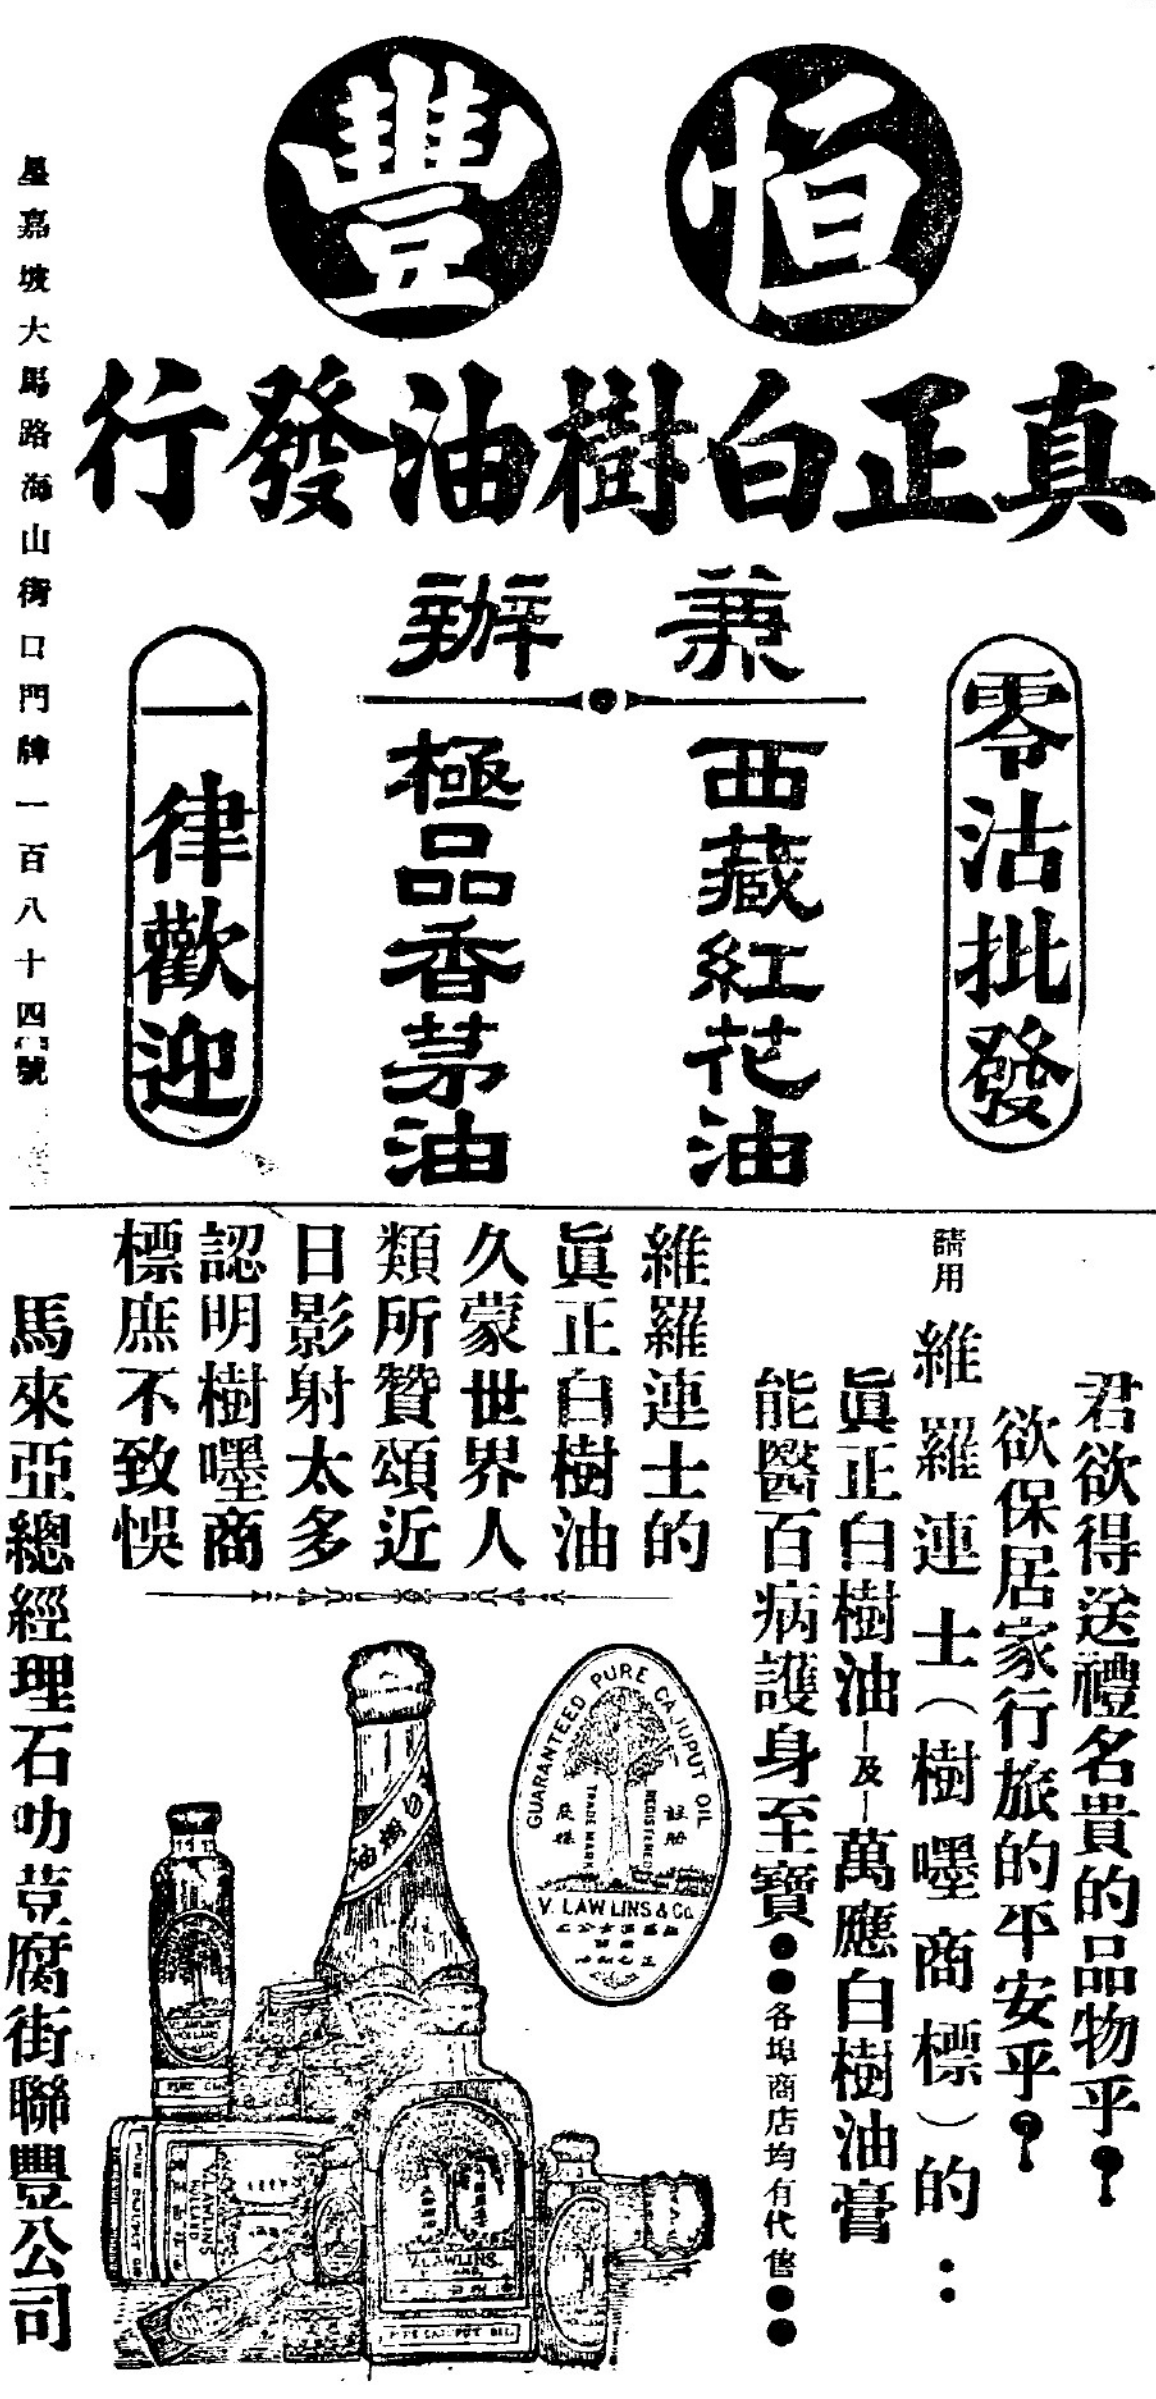 恒豐
真正白樹油發行
兼辦
零沽批發
西藏紅花油
極品香茅油
一律歡迎
星嘉坡大馬路海山街口門牌一百八十四號
君欲得送禮名貴的品物乎?
欲保居家行旅的平安乎?
請用維羅連士(樹嘜商標)的:
眞正白樹油—及—萬應白樹油膏
能醫百病護身至寶●●各埠商店均有代售●●
維羅連士的
眞正白樹油
久蒙世界人
類所贊頌近
日影射太多
認明樹嘜商
標庶不致悞
GUARANTEED PURE CAJUPUT OIL
TRADE MARK
REGISTERED
註册
V. LAWLINS & Co.
白樹油
V. LAWLINS
HOLLAND
V. LAWLINS
馬來亞總經理石叻荳腐街聯豐公司